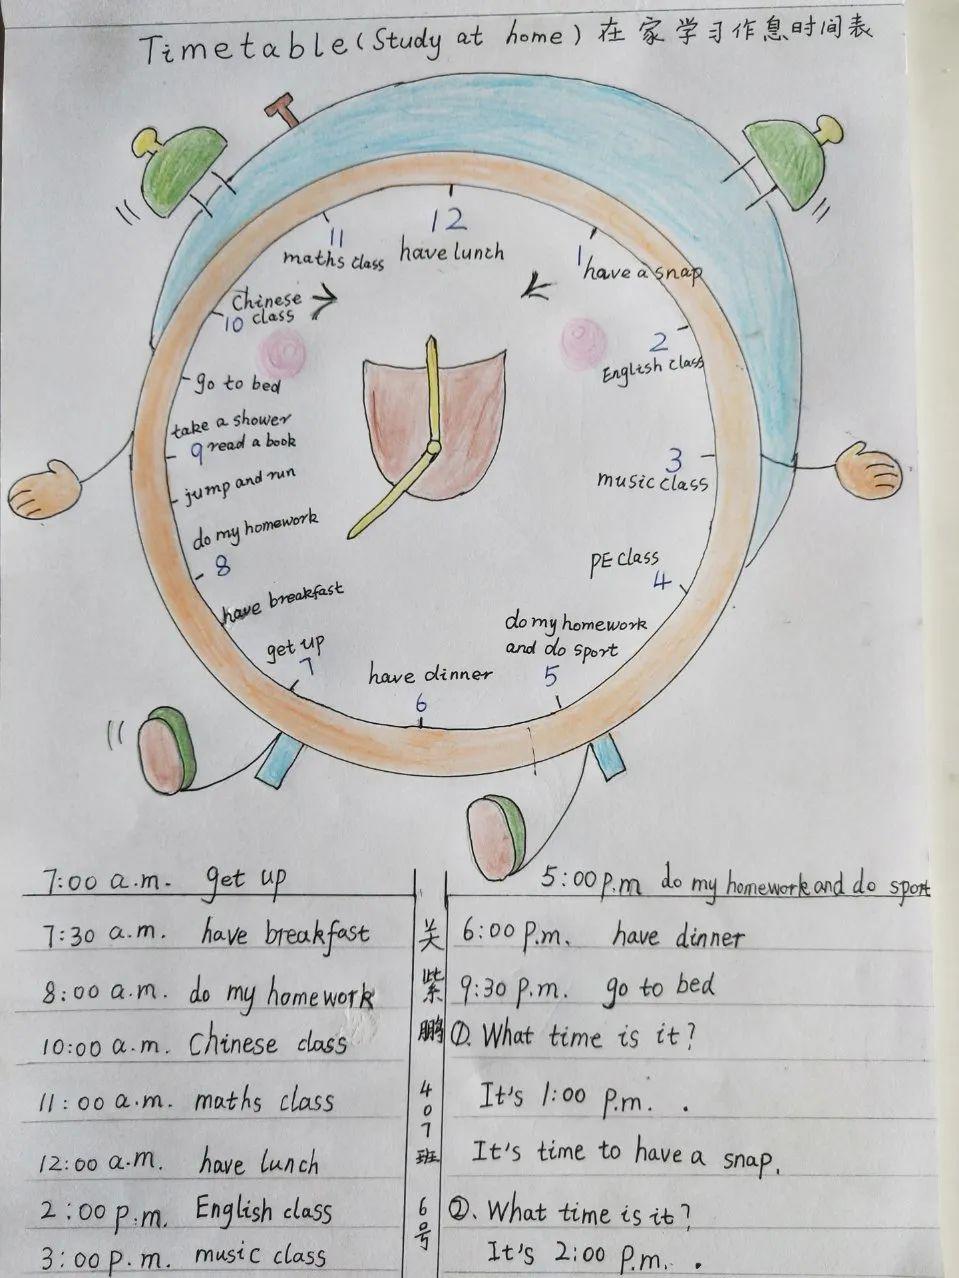 Timetable(Study at home) 在家学习作息时间表
12
have lunch
11
maths class
1
have a snap
Chinese
10 class
2
English class
go to bed
take a shower
9 read a book
3
music class
jump and run
do my homework
8
PE class
4
have breakfast
do my homework
and do sport
5
get up
7
have dinner
6
7:00 a.m. get up
7:30 a.m. have breakfast
8:00 a.m. do my homework
10:00 a.m. Chinese class
11:00 a.m. maths class
12:00 a.m. have lunch
2:00 p.m. English class
3:00 p.m. music class
关紫鹏 407班 6号
5:00 p.m do my homework and do sport
6:00 p.m. have dinner
9:30 p.m. go to bed
①. What time is it?
It's 1:00 p.m. .
It's time to have a snap.
②. What time is it?
It's 2:00 p.m. .